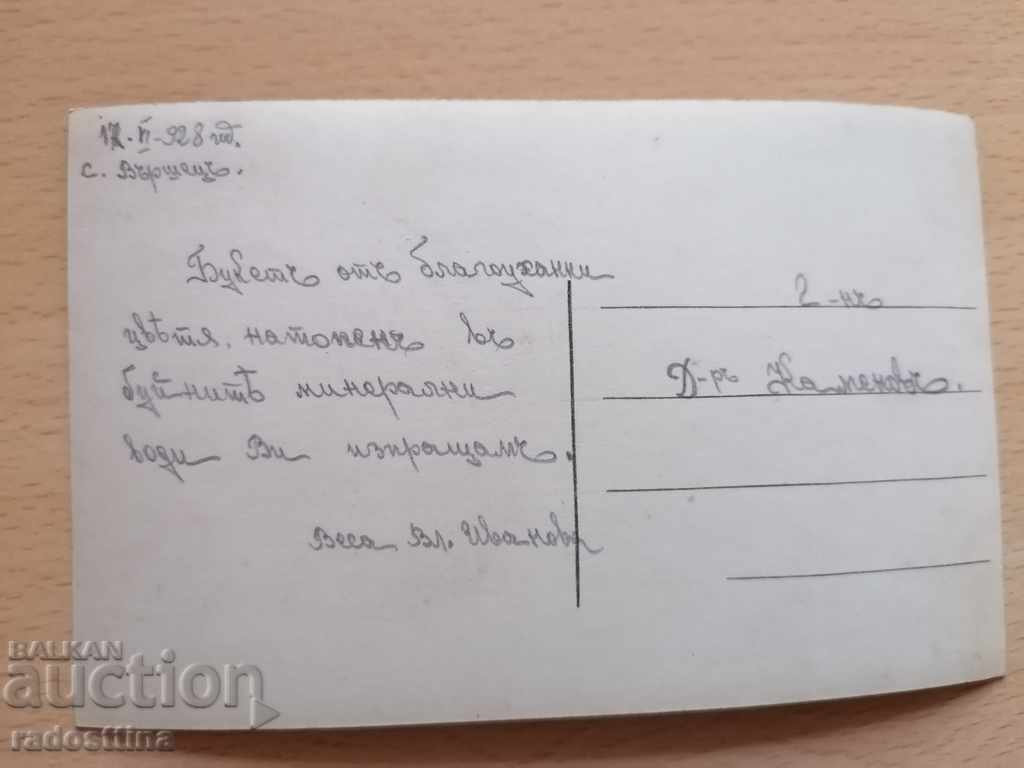 17. VI - 928 год.
с. Вършецъ.
Букетъ отъ благоуханни
цвѣтя, натопенъ въ
буйнитѣ минерални
води Ви изпращамъ.
Веса Вл. Иванова
Г-нъ
Д-ръ Каменовъ.
BALKAN
auction
radosttina